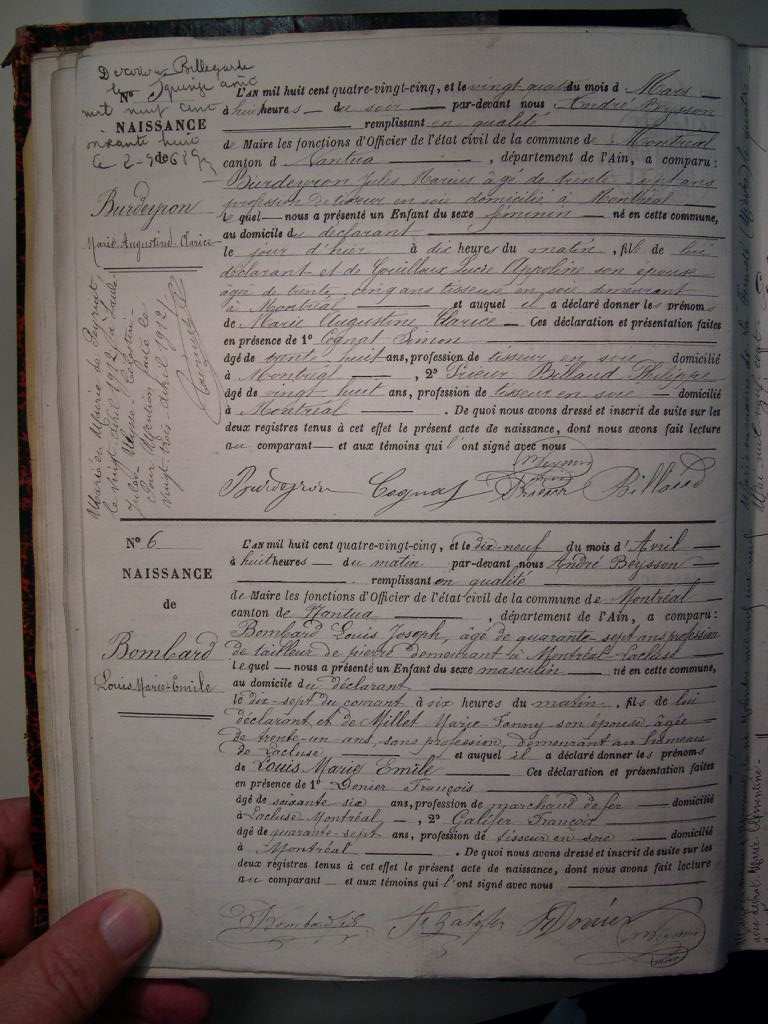 Décédée à Bellegarde
le quinze avril
mil neuf cent
soixante huit
Nº 5
NAISSANCE
de
Burdeyron
Marie Augustine Clarice
Marié en Mairie de Peyriat
le vingt avril 1912 à
Pour Mention faite le
vingt trois avril 1912
L'AN mil huit cent quatre-vingt-cinq, et le vingt quatre du mois d Mars
à huit heures du soir par-devant nous André Beysson
remplissant en qualité
de Maire les fonctions d'Officier de l'état civil de la commune de Montréal
canton d Nantua, département de l'Ain, a comparu:
Burdeyron Jules Marius âgé de trente sept ans
profession de tisseur en soie domicilié à Montréal
Le quel nous a présenté un Enfant du sexe féminin né en cette commune,
au domicile du déclarant
le jour d'hier à dix heures du matin, fille de lui
déclarant et de Gouilloux Lucie Appoline son épouse
âgée de trente cinq ans tisseuse en soie demeurant
à Montréal et auquel il a déclaré donner les prénoms
de Marie Augustine Clarice Ces déclaration et présentation faites
en présence de 1º Cognat Simon
âgé de trente huit ans, profession de tisseur en soie domicilié
à Montréal, 2º Prieur Billaud Philippe
âgé de vingt huit ans, profession de tisseur en soie domicilié
à Montréal. De quoi nous avons dressé et inscrit de suite sur les
deux registres tenus à cet effet le présent acte de naissance, dont nous avons fait lecture
au comparant et aux témoins qui l'ont signé avec nous
Burdeyron Cognat Prieur Billaud
Nº 6
NAISSANCE
de
Bombard
Louis Marie Emile
L'AN mil huit cent quatre-vingt-cinq, et le dix-neuf du mois d'Avril
à huit heures du matin par-devant nous André Beysson
remplissant en qualité
de Maire les fonctions d'Officier de l'état civil de la commune de Montréal
canton de Nantua, département de l'Ain, a comparu:
Bombard Louis Joseph, âgé de quarante-sept ans profession
de tailleur de pierre demeurant à Montréal-Lacluse
Le quel nous a présenté un Enfant du sexe masculin né en cette commune,
au domicile du déclarant
le dix-sept du courant à six heures du matin, fils de lui
déclarant et de Millet Marie Fanny son épouse, âgée
de trente-un ans, sans profession, demeurant au hameau
de Lacluse et auquel il a déclaré donner les prénoms
de Louis Marie Emile Ces déclaration et présentation faites
en présence de 1º Donier François
âgé de soixante six ans, profession de marchand de fer domicilié
à Lacluse Montréal, 2º Galifer François
âgé de quarante-sept ans, profession de tisseur en soie domicilié
à Montréal. De quoi nous avons dressé et inscrit de suite sur les
deux registres tenus à cet effet le présent acte de naissance, dont nous avons fait lecture
au comparant et aux témoins qui l'ont signé avec nous
Bombard Donier